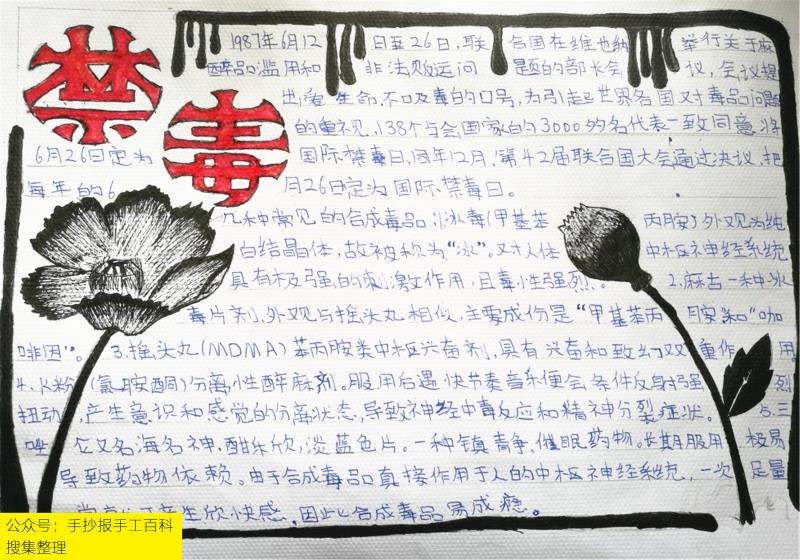 禁毒
1987年6月12日至26日,联合国在维也纳举行关于麻
醉品滥用和非法贩运问题的部长会议,会议提
出"爱生命,不吸毒"的口号,为引起世界各国对毒品问题
的重视,138个与会国家的3000多名代表一致同意将
6月26日定为国际禁毒日,同年12月,第42届联合国大会通过决议,把
每年的6月26日定为国际禁毒日。
几种常见的合成毒品,1.冰毒(甲基苯丙胺)外观为纯
白结晶体,故被称为"冰"。对人体中枢神经系统
具有极强的刺激作用,且毒性强烈。2.麻古一种冰
毒片剂,外观与摇头丸相似,主要成份是"甲基苯丙胺和"咖
啡因"。3.摇头丸(MDMA)苯丙胺类中枢兴奋剂,具有兴奋和致幻双重作用
4.K粉(氯胺酮)分离性醉麻剂。服用后遇快节奏音乐便会条件反射强烈
扭动,产生意识和感觉的分离状态,导致神经中毒反应和精神分裂症状。5.三
唑仑又名海名神,酣乐欣,淡蓝色片。一种镇静,催眠药物。长期服用极易
导致药物依赖。由于合成毒品直接作用于人的中枢神经系统,一次足量
产生欣快感,因此合成毒品易成瘾。
公众号:手抄报手工百科
搜集整理